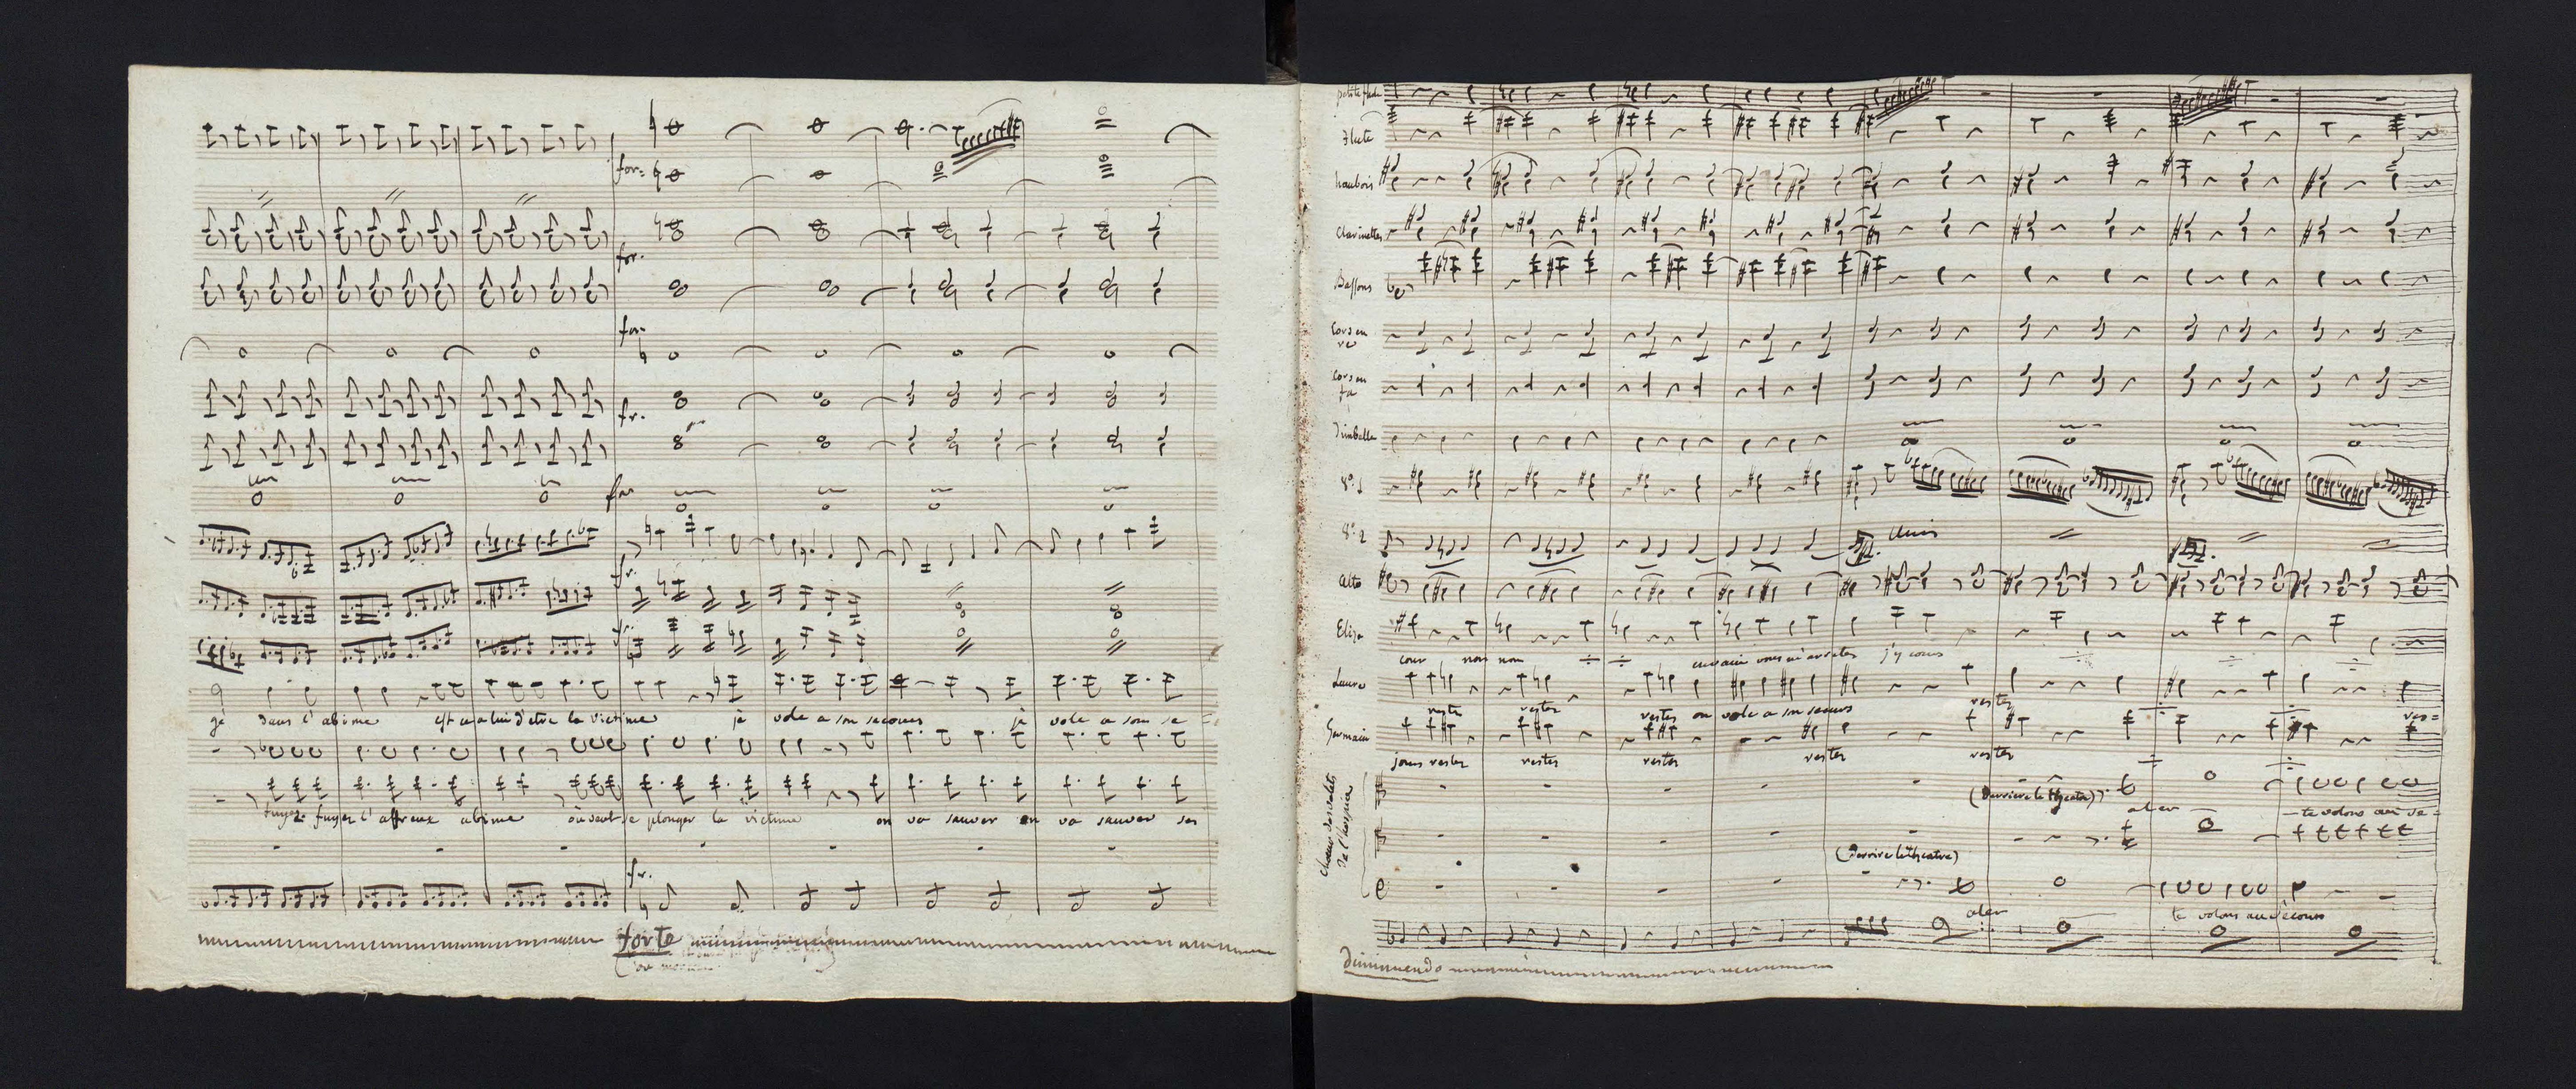 for:
for.
for.
fr.
for
fr.
fr.
gé dans l'abime est ce a lui d'etre la victime je vole a son secours je vole a son se
fuyez fuyez l'affreux abime où veut se plonger la victime on va sauver on va sauver ses
fr.
forte
petite flute
flute
hautbois
Clarinettes
Bassons
Cors en re
Cors en fa
Timballe
Vº. 1
Vº. 2
unis
alto
Eliza
cour non non envain vous m'arretez j'y cours
Laure
restez restez restez on vole a son secours restez res=
Germain
jours restez restez restez restez restez
Choeur des valets de l'hospice
(Derriere le theatre)
te volons au se=
(Derriere le theatre)
te volons au secours
Diminuendo